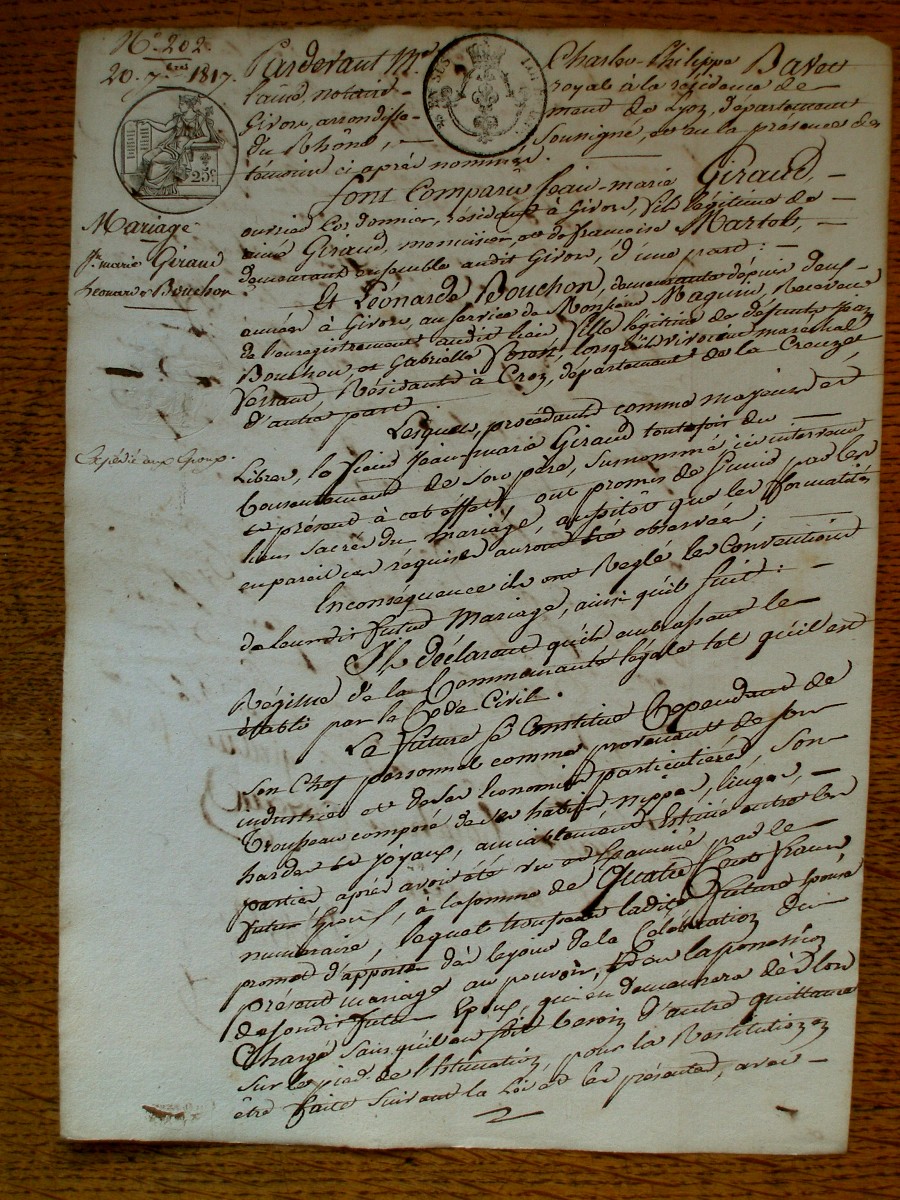 N.o 202.
20. 7bre 1817.
25c
Mariage
Jn. marie Giraud
Léonarde Bouchon
Expédié aux Epoux.
Pardevant Me. Charles-Philippe Bavet
l'ainé, notaire royal à la résidence de
Givors, arrondissement de Lyon, département
du Rhône, soussigné, et en la présence des
témoins ci après nommés.
Sont comparus Jean-marie Giraud,
ouvrier Cordonnier, résidant à Givors, fils légitime de
Giraud, menuisier, et de françoise Martol,
demeurants ensemble audit Givors, d'une part: -
Et Léonarde Bouchon, demeurante depuis deux
années à Givors, au service de Monsieur Maguin, Receveur
de l'enregistrement audit lieu, fille légitime de défunts Jean
Bouchon, et Gabrielle lorsqu'il vivoient maréchal
ferrand, Résidants à Croz, département de la Creuze,
d'autre part.
Lesquels, procédants comme majeurs et
Libres, le sieur Jean-marie Giraud toutefois du
Consentement de son père, surnommé ici intervenu
et présent à cet effet, ont promis de s'unir par les
liens sacrés du mariage, aussitôt que les formalités
en pareil cas requises auront été observées;
En conséquence ils ont Réglé les Conventions
de leurdit futur Mariage, ainsi qu'il suit: -
Ils déclarent qu'ils embrassent le
Régime de la Communauté légale tel qu'il est
établi par le Code Civil.
La future se Constitue Cependant de
Son Chef personnel comme provenant de son
industrie et de ses économies particulières, Son
Trousseau composé de ses habits, nippes, linges,
hardes et joyaux, amiablement Estimé entre les
parties après avoir été vu et Examiné par le
futur Epoux, à la somme de Quatre Cent francs
numéraire, lequel trousseau ladite future Epouse
promet d'apporter dès le jour de la Célébration du
présent mariage au pouvoir, Et en la possession
de sondit futur Epoux, qui en demeurera dès Alors
Chargé sans qu'il en soit besoin d'autre quittance
Sur le pied de l'Estimation, pour la Restitution en
être faite suivant la Loi et les présentes, avec